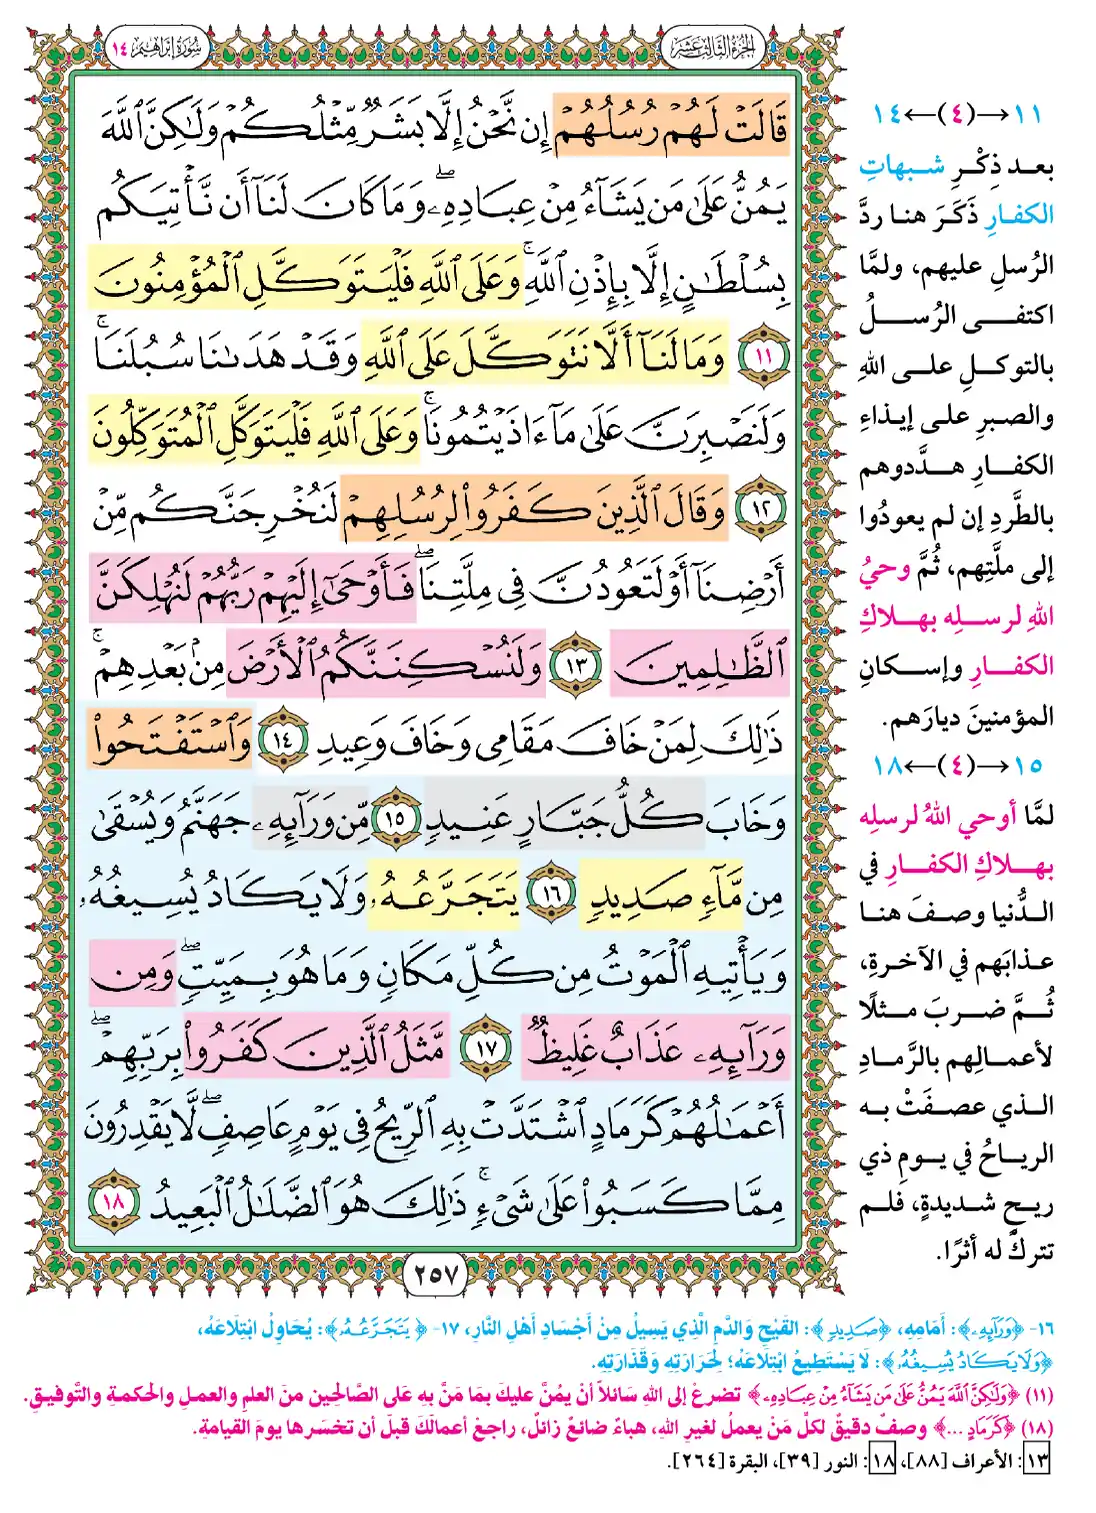 الجزء الثالث عشر
سورة إبراهيم ١٤
قَالَتْ لَهُمْ رُسُلُهُمْ إِن نَّحْنُ إِلَّا بَشَرٌ مِّثْلُكُمْ وَلَٰكِنَّ ٱللَّهَ
يَمُنُّ عَلَىٰ مَن يَشَآءُ مِنْ عِبَادِهِۦۖ وَمَا كَانَ لَنَآ أَن نَّأْتِيَكُم
بِسُلْطَٰنٍ إِلَّا بِإِذْنِ ٱللَّهِۚ وَعَلَى ٱللَّهِ فَلْيَتَوَكَّلِ ٱلْمُؤْمِنُونَ
١١ وَمَا لَنَآ أَلَّا نَتَوَكَّلَ عَلَى ٱللَّهِ وَقَدْ هَدَىٰنَا سُبُلَنَاۚ
وَلَنَصْبِرَنَّ عَلَىٰ مَآ ءَاذَيْتُمُونَاۚ وَعَلَى ٱللَّهِ فَلْيَتَوَكَّلِ ٱلْمُتَوَكِّلُونَ
١٢ وَقَالَ ٱلَّذِينَ كَفَرُوا۟ لِرُسُلِهِمْ لَنُخْرِجَنَّكُم مِّنْ
أَرْضِنَآ أَوْ لَتَعُودُنَّ فِى مِلَّتِنَاۖ فَأَوْحَىٰٓ إِلَيْهِمْ رَبُّهُمْ لَنُهْلِكَنَّ
ٱلظَّٰلِمِينَ ١٣ وَلَنُسْكِنَنَّكُمُ ٱلْأَرْضَ مِنۢ بَعْدِهِمْۚ
ذَٰلِكَ لِمَنْ خَافَ مَقَامِى وَخَافَ وَعِيدِ ١٤ وَٱسْتَفْتَحُوا۟
وَخَابَ كُلُّ جَبَّارٍ عَنِيدٍ ١٥ مِّن وَرَآئِهِۦ جَهَنَّمُ وَيُسْقَىٰ
مِن مَّآءٍ صَدِيدٍ ١٦ يَتَجَرَّعُهُۥ وَلَا يَكَادُ يُسِيغُهُۥ
وَيَأْتِيهِ ٱلْمَوْتُ مِن كُلِّ مَكَانٍ وَمَا هُوَ بِمَيِّتٍۖ وَمِن
وَرَآئِهِۦ عَذَابٌ غَلِيظٌ ١٧ مَّثَلُ ٱلَّذِينَ كَفَرُوا۟ بِرَبِّهِمْۖ
أَعْمَٰلُهُمْ كَرَمَادٍ ٱشْتَدَّتْ بِهِ ٱلرِّيحُ فِى يَوْمٍ عَاصِفٍۖ لَّا يَقْدِرُونَ
مِمَّا كَسَبُوا۟ عَلَىٰ شَىْءٍۚ ذَٰلِكَ هُوَ ٱلضَّلَٰلُ ٱلْبَعِيدُ ١٨
٢٥٧
١١→(٤)←١٤
بعد ذِكْرِ شبهاتِ
الكفارِ ذَكَرَ هنا ردَّ
الرُسلِ عليهم، ولمَّا
اكتفى الرُسلُ
بالتوكلِ على اللهِ
والصبرِ على إيذاءِ
الكفارِ هدَّدوهم
بالطَّردِ إن لم يعودُوا
إلى ملَّتِهم، ثُمَّ وحيُ
اللهِ لرسلِه بهلاكِ
الكفارِ وإسكانِ
المؤمنينَ ديارَهم.
١٥→(٤)←١٨
لمَّا أوحي اللهُ لرسلِه
بهلاكِ الكفارِ في
الدُّنيا وصفَ هنا
عذابَهم في الآخرةِ،
ثُمَّ ضربَ مثلًا
لأعمالِهم بالرَّمادِ
الذي عصفَتْ به
الرياحُ في يومِ ذي
ريحٍ شديدةٍ، فلم
تتركْ له أثرًا.
١٦- ﴿وَرَآئِهِۦ﴾: أَمَامِهِ، ﴿صَدِيدٍ﴾: القَيْحِ وَالدَّمِ الَّذِي يَسِيلُ مِنْ أَجْسَادِ أَهْلِ النَّارِ، ١٧- ﴿يَتَجَرَّعُهُۥ﴾: يُحَاوِلُ ابْتِلَاعَهُ،
﴿وَلَا يَكَادُ يُسِيغُهُۥ﴾: لَا يَسْتَطِيعُ ابْتِلَاعَهُ؛ لِحَرَارَتِهِ وَقَذَارَتِهِ.
(١١) ﴿وَلَٰكِنَّ ٱللَّهَ يَمُنُّ عَلَىٰ مَن يَشَآءُ مِنْ عِبَادِهِۦ﴾ تضرعْ إلى اللهِ سَائلاً أنْ يمُنَّ عليكَ بمَا مَنَّ بِه عَلى الصَّالحِين منَ العلمِ والعملِ والحكمةِ والتَّوفيقِ.
(١٨) ﴿كَرَمَادٍ ...﴾ وصفٌ دقيقٌ لكلِّ مَنْ يعملُ لغيرِ اللهِ، هباءٌ ضائعٌ زائلٌ، راجعْ أعمالَكَ قبلَ أن تخسَرها يومَ القيامةِ.
١٣: الأعراف [٨٨]، ١٨: النور [٣٩]، البقرة [٢٦٤].